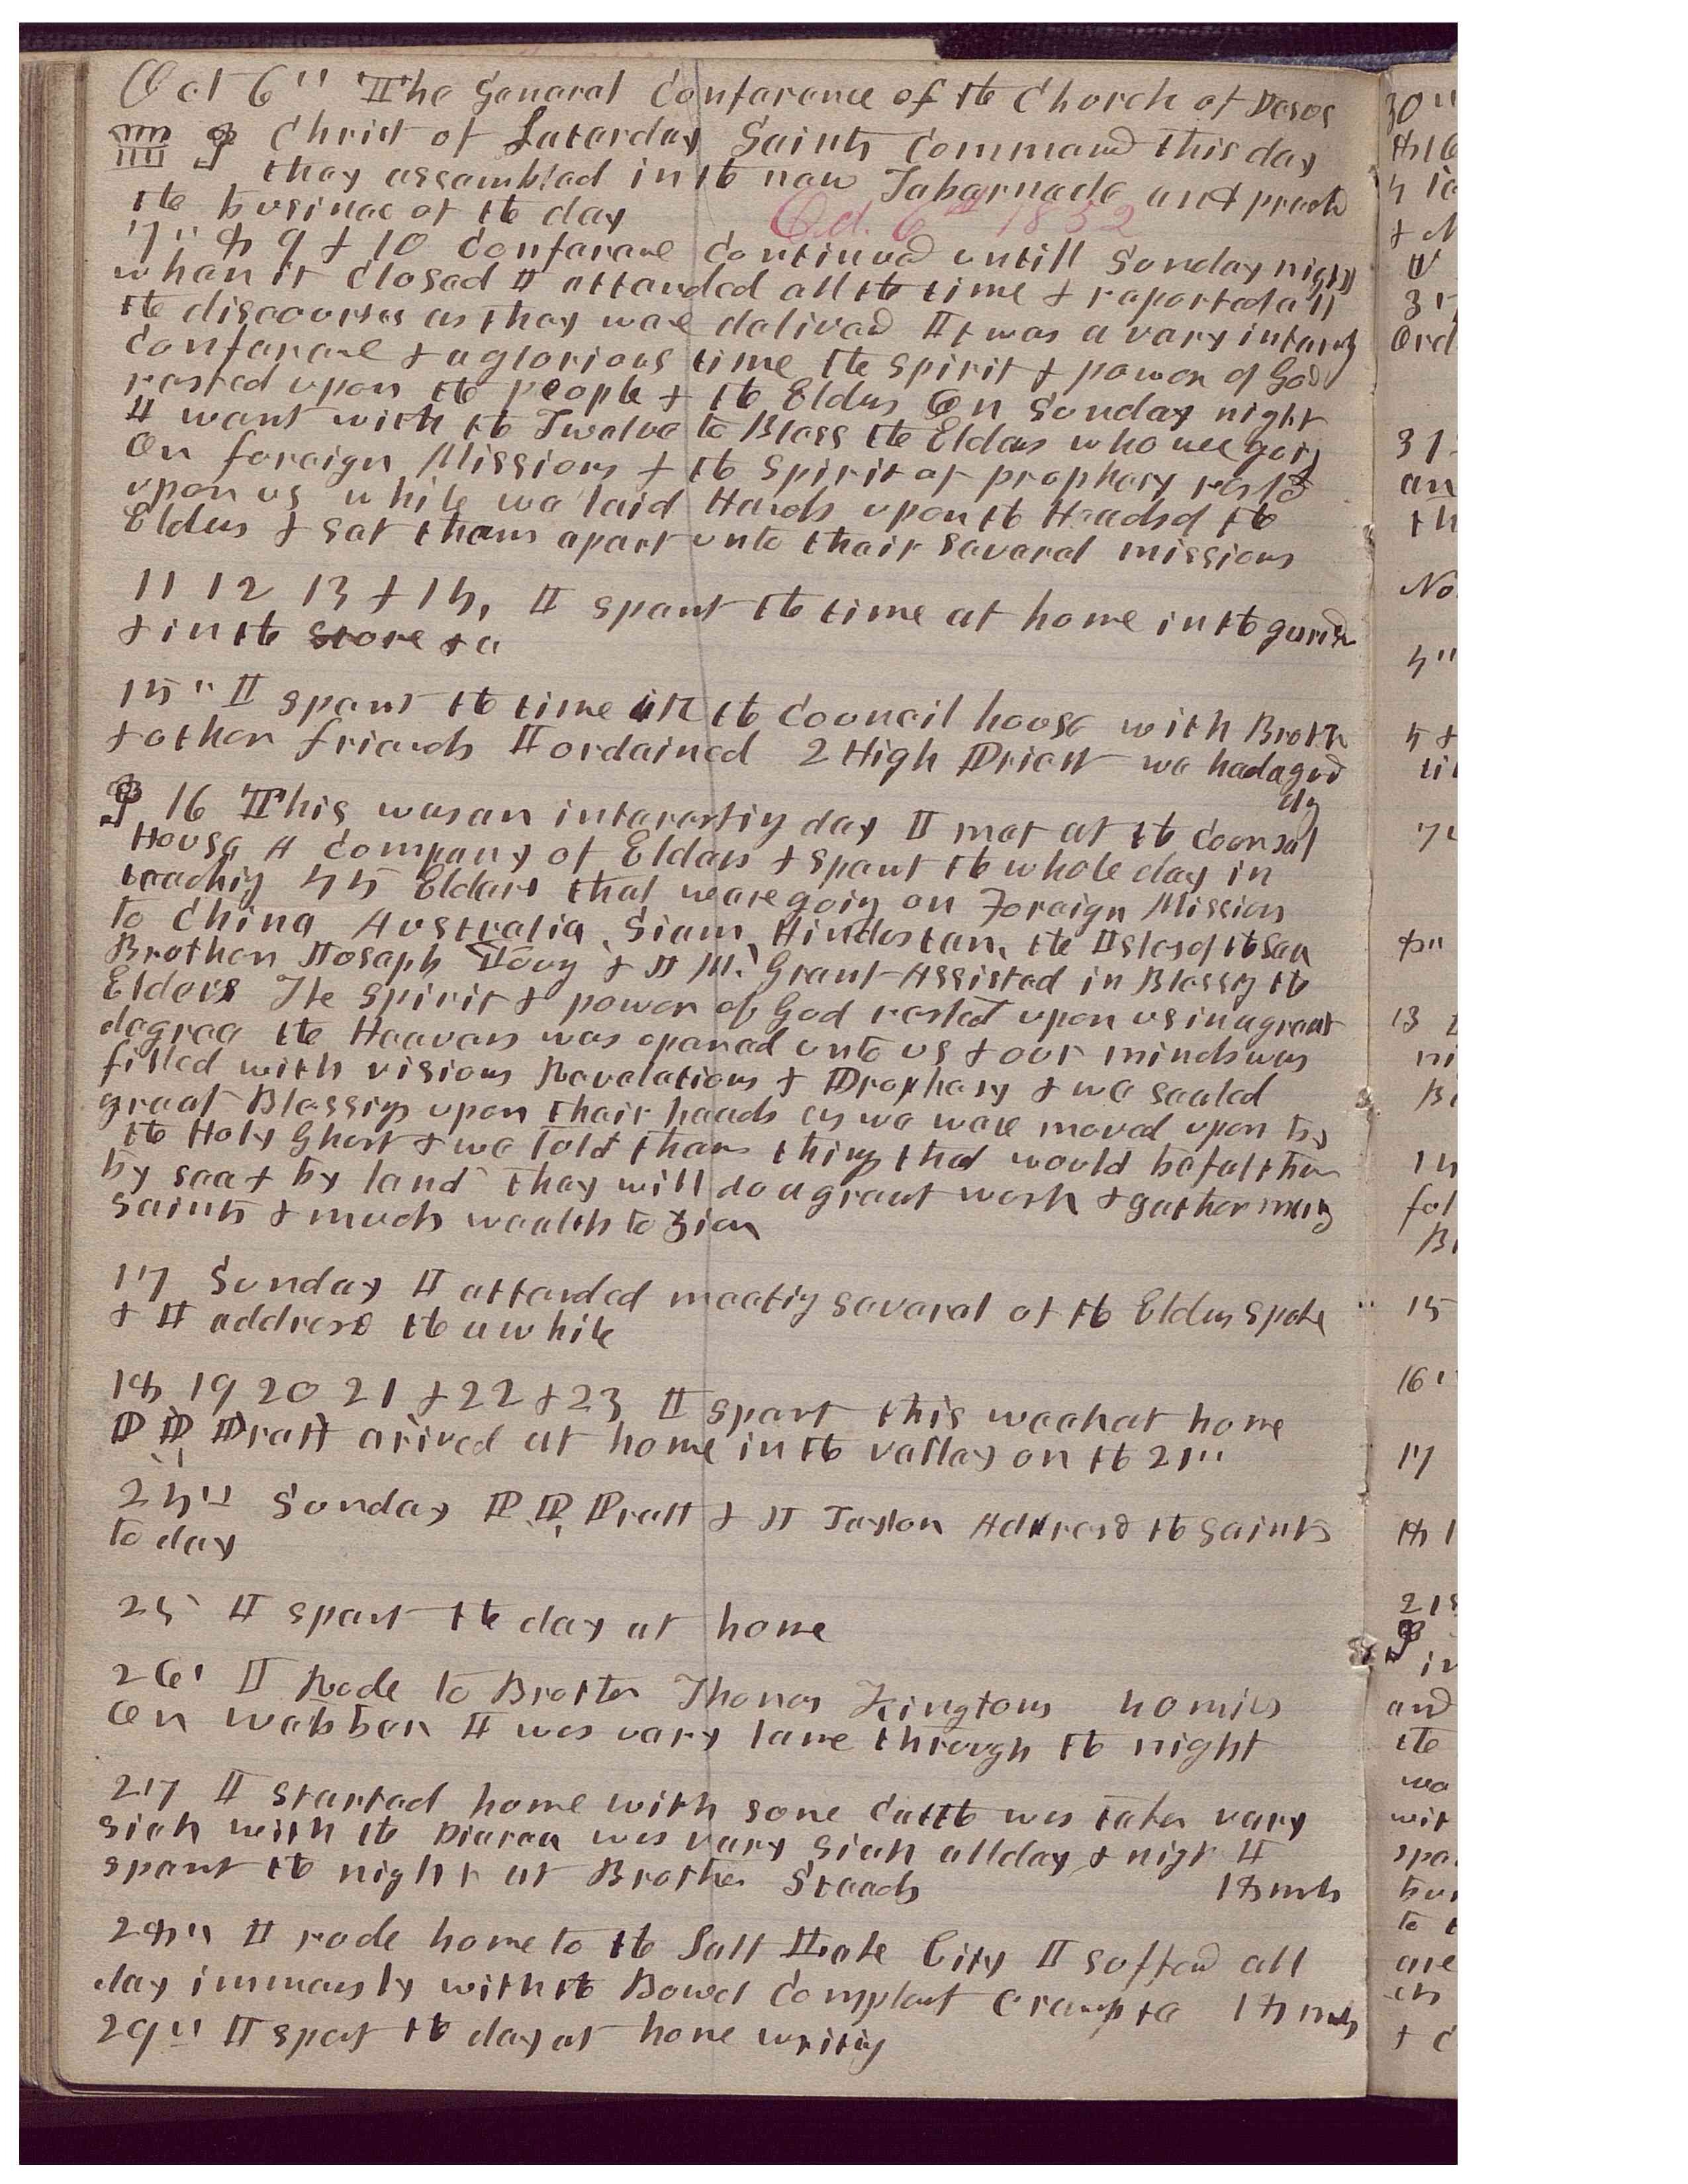 Oct 6" The General Conference of the Church of Jesus
Christ of Laterday Saints Commencd this day
they assembled in the new Tabernacle and
the business of the day
Oct. 6th 1852
7" 8 9 & 10 Conference Continued untill Sunday night
when it closed I attended all the time & reported all
the discourses as they were deliverd It was a very interesting
Conference & a glorious time the spirit & power of God
rested upon the people & the Elders On Sunday night
I went with the Twelve to Bless the Elders who were going
on foreign Missions & the spirit of prophesy rested
upon us while we laid Hands upon the Heads of the
Elders & set them apart unto their several missions
11 12 13 & 14, I spent the time at home in the garden
& in the store &c
15" I spent the time in the Council house with Brother
& other friends I ordained 2 High Priest we had a good
day
16 This was an interesting day I met at the Counsel
House A company of Elders & spent the whole day in
teaching 45 Elders that weare going on Foreign Mission
to China Australia, Siam, Hindostan, the Isles of the Sea
Brother Joseph Young & J M. Grant Assisted in Blessing the
Elders The spirit & power of God rested upon us in a great
degree the Heavens was opened unto us & our minds was
filled with visions Revelations & Prophesy & we sealed
great Blessings upon their heads as we ware moved upon by
the Holy Ghost & we told them things that would befal them
by sea & by land they will do a great work & gather many
saints & much wealth to Zion
17 Sunday I attended meeting several of the Elders spoke
& I addressd the a while
18 19 20 21 & 22 & 23 I spent this week at home
P P Pratt arived at home in the valley on the 21"
24" Sunday P P Pratt & J Taylor Addressd the saints
to day
25 I spent the day at home
26' I Rode to Brother Thomas Kingtons 40 miles
on Webber I was very lame through the night
27 I started home with some cattle was taken very
sick with the Diarea was very sick all day & night I
spent the night at Brother Steeds 18 mls
28" I rode home to the Salt Lake City I sufferd all
day immensly with the Bowel Complent Cramp &c 18 mls
29" I spent the day at home writing